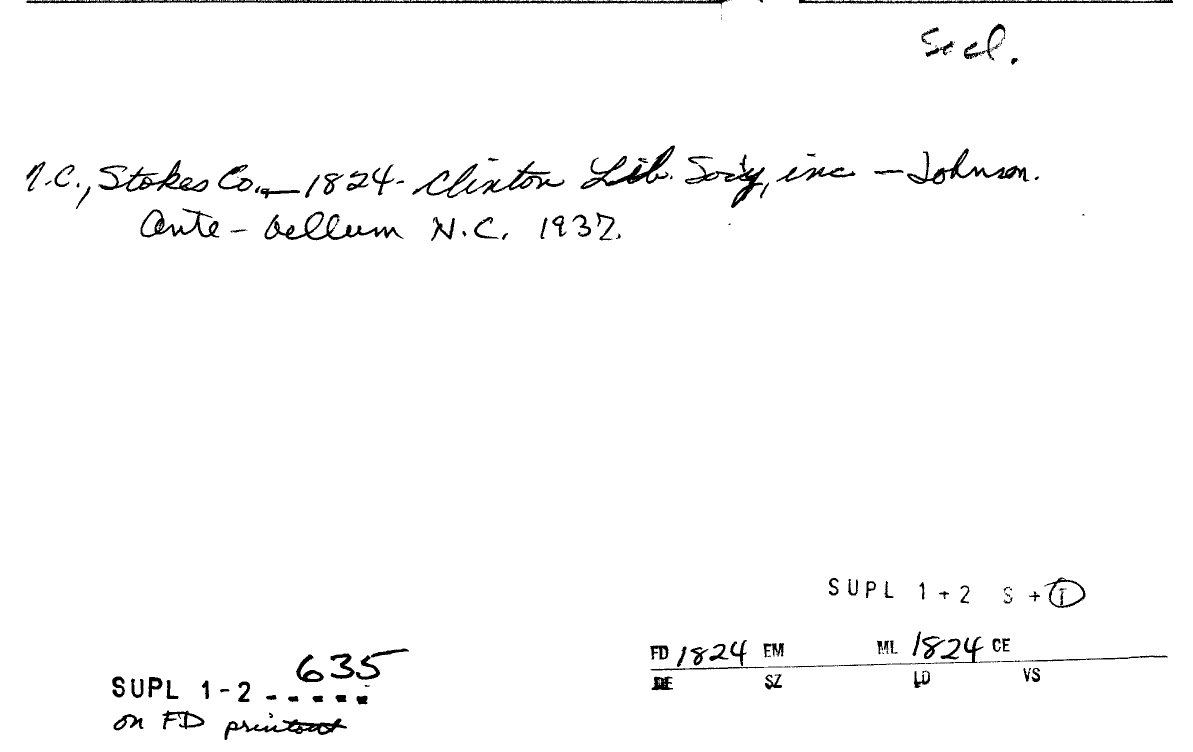 Socl.
N.C., Stokes Co. — 1824 - Clinton Lib. Soc'y, inc — Johnson.
Ante-bellum N.C. 1937.
SUPL 1+2 S+I
FD 1824 EM ML 1824 CE
DE SZ LD VS
635
SUPL 1-2 - - - - -
on FD printout